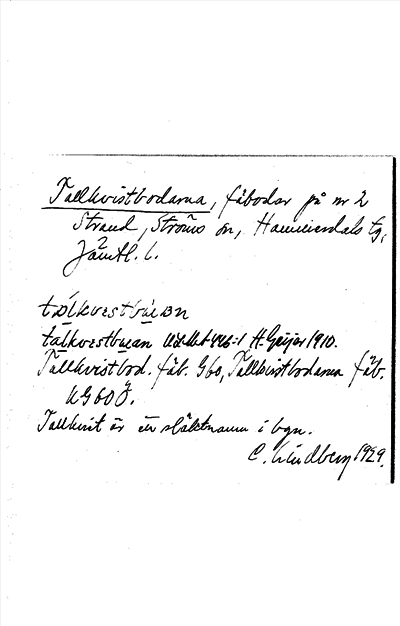 Tallkvistbodarna, fäbodar på nr 2
Strand, Ströms sn, Hammerdals tg,
Jämtl. l.
talkvestbuan H. Geijer 1910.
Tallkvistbod. fäb. G60, Tallkvistbodarna fäb.
KG60Ö.
Tallkvist är ett släktnamn i byn.
C. Lindberg 1929.